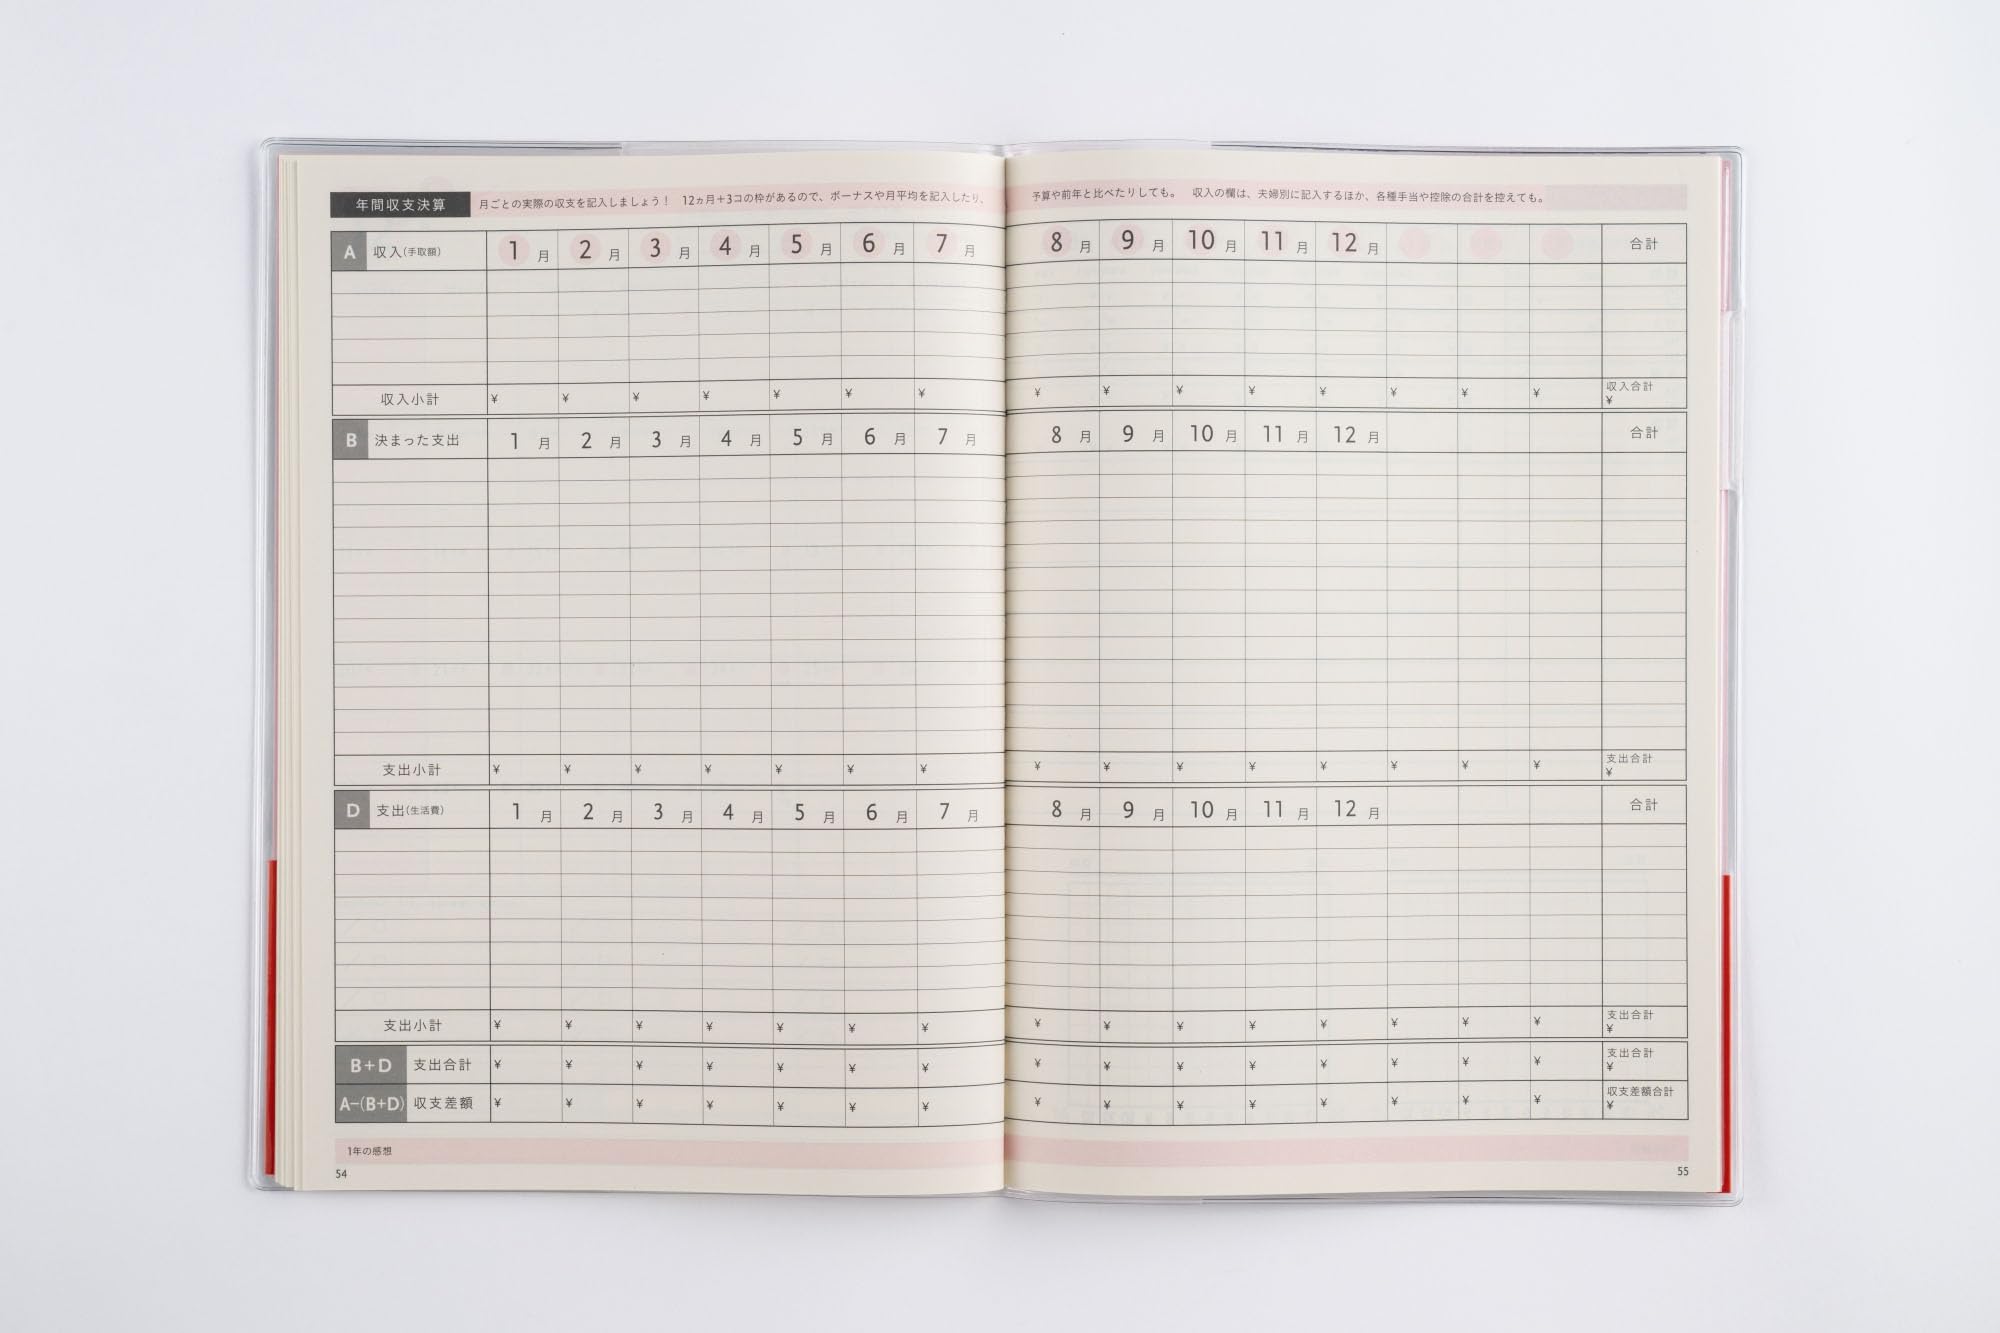 年間収支決算 月ごとの実際の収支を記入しましょう！ 12ヵ月+3コの枠があるので、ボーナスや月平均を記入したり、 予算や前年と比べたりしても。 収入の欄は、夫婦別に記入するほか、各種手当や控除の合計を控えても。
A 収入(手取額) 1月 2月 3月 4月 5月 6月 7月 8月 9月 10月 11月 12月 合計
収入小計 ¥ ¥ ¥ ¥ ¥ ¥ ¥ ¥ ¥ ¥ ¥ ¥ ¥ ¥ ¥ 収入合計 ¥
B 決まった支出 1月 2月 3月 4月 5月 6月 7月 8月 9月 10月 11月 12月 合計
支出小計 ¥ ¥ ¥ ¥ ¥ ¥ ¥ ¥ ¥ ¥ ¥ ¥ ¥ ¥ ¥ 支出合計 ¥
D 支出(生活費) 1月 2月 3月 4月 5月 6月 7月 8月 9月 10月 11月 12月 合計
支出小計 ¥ ¥ ¥ ¥ ¥ ¥ ¥ ¥ ¥ ¥ ¥ ¥ ¥ ¥ ¥ 支出合計 ¥
B+D 支出合計 ¥ ¥ ¥ ¥ ¥ ¥ ¥ ¥ ¥ ¥ ¥ ¥ ¥ ¥ ¥ 支出合計 ¥
A-(B+D) 収支差額 ¥ ¥ ¥ ¥ ¥ ¥ ¥ ¥ ¥ ¥ ¥ ¥ ¥ ¥ ¥ 収支差額合計 ¥
1年の感想
54 55